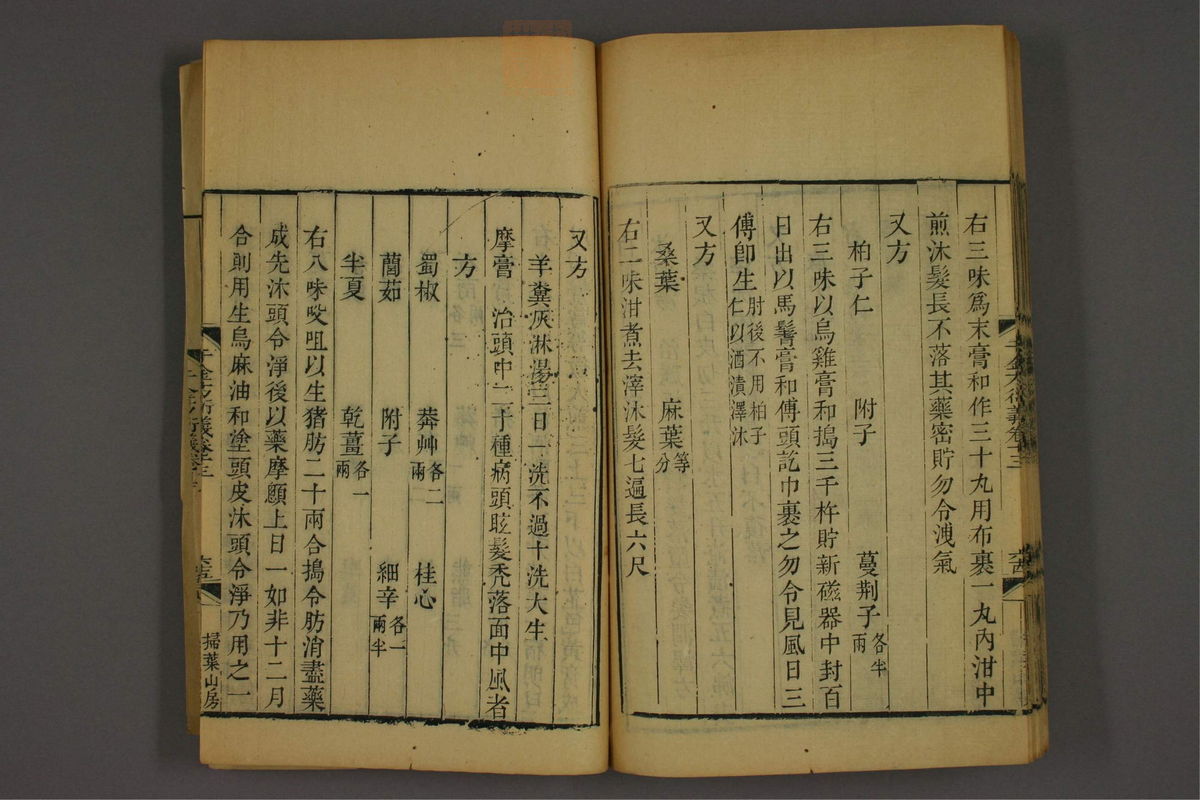 右三味爲末膏和作三十丸用布裹一丸內泔中
煎沐髮長不落其藥密貯勿令洩氣
又方
柏子仁 附子 蔓荆子各半兩
右三味以烏雞膏和搗三千杵貯新磁器中封百
日出以馬鬐膏和傅頭訖巾裹之勿令見風日三
傅卽生肘後不用柏子仁以酒漬澤沐
又方
桑葉 麻葉等分
右二味泔煮去滓沐髮七遍長六尺
又方
羊糞灰淋湯三日一洗不過十洗大生
摩膏 治頭中二十種病頭眩髮禿落面中風者
方
蜀椒 莽艸各二兩 桂心
䕡茹 附子 細辛各一兩半
半夏 乾薑各一兩
右八味㕮咀以生猪肪二十兩合搗令肪消盡藥
成先沐頭令淨後以藥摩顖上日一如非十二月
合則用生烏麻油和塗頭皮沐頭令淨乃用之一
千金方衍義卷十三
掃葉山房